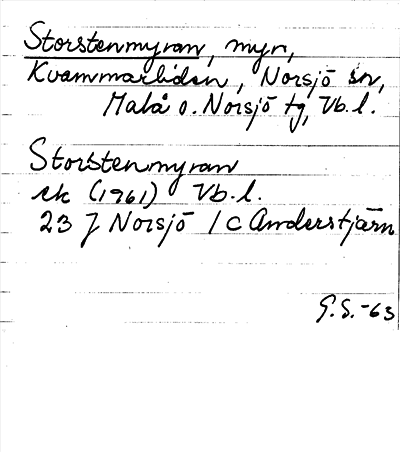 Storstenmyran, myr,
Kvammarliden, Norsjö sn,
Malå o. Norsjö tg, Vb.l.
Storstenmyran
ek (1961) Vb.l.
23 J Norsjö 1 c Anderstjärn
G.S.-63